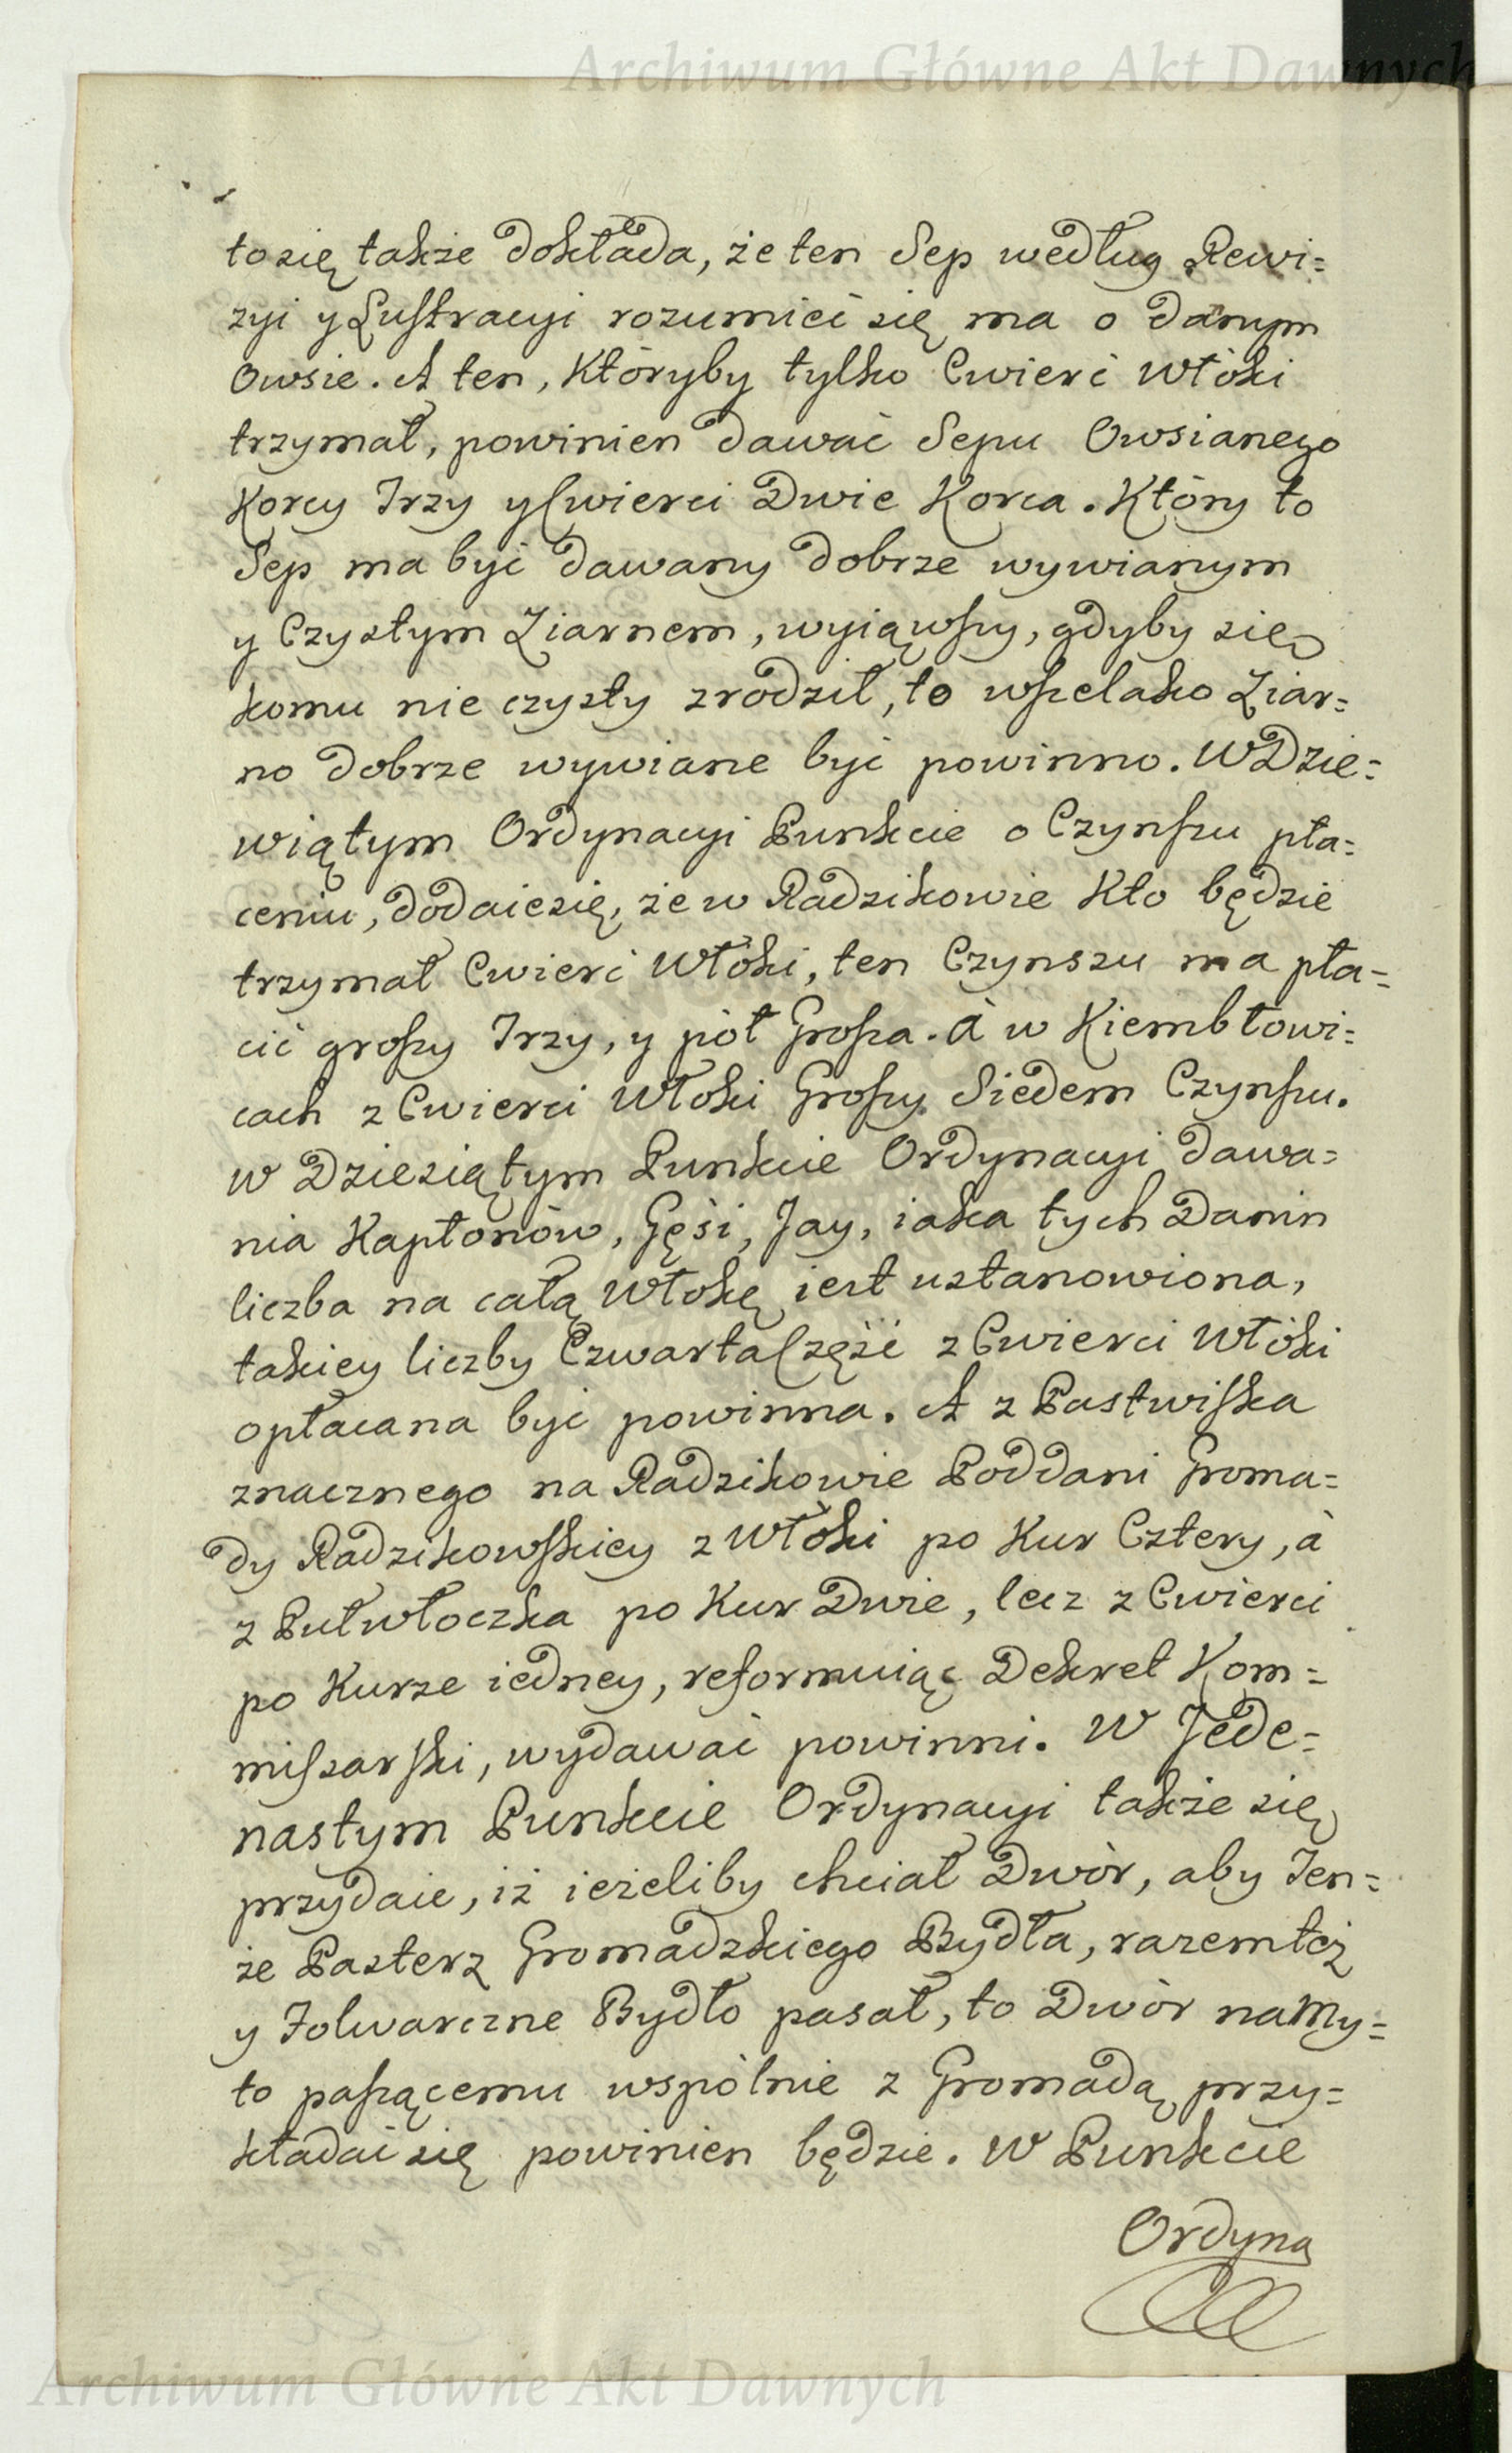 Archiwum Główne Akt Dawnych
to się także dokłada, że ten Sep według Rewi=
zyi y Lustracyi rozumieć się ma o danym
Owsie. A ten, Któryby tylko Cwierć Włóki
trzymał, powinien dawać Sepu Owsianego
Korcy Trzy y Cwierci Dwie Korca. Który to
Sep ma być dawany dobrze wywianym
y Czystym Ziarnem, wyiąwszy, gdyby się
komu nie czysty zrodził, to wszelako Ziar=
no dobrze wywiane być powinno. W Dzie=
wiątym Ordynacyi Punkcie o Czynszu pła=
ceniu, dodaie się, że w Radzikowie Kto będzie
trzymał Cwierć Włóki, ten Czynszu ma pła=
cić groszy Trzy, y pół Grosza. à w Kiembłowi=
cach z Cwierci Włoki Groszy Siedem Czynszu.
w Dziesiątym Punkcie Ordynacyi dawa=
nia Kapłonów, Gęśi, Jay, iaka tych Danin
liczba na całą Włokę iest ustanowiona,
takiey liczby Czwarta Część z Cwierci Włóki
opłacana być powinna. A z Pastwiska
znacznego na Radzikowie Poddani Groma=
dy Radzikowskiey z Włóki po Kur Cztery, à
z Pułwłoczka po Kur Dwie, lecz z Cwierci
po Kurze iedney, reformuiąc Dekret Kom=
missarski, wydawać powinni. W Jede=
nastym Punkcie Ordynacyi także się
przydaie, iż ieżeliby chciał Dwór, aby Ten=
że Pasterz Gromadzkiego Bydła, razem też
y Folwarczne Bydło pasał, to Dwór na My=
to paszącemu wspólnie z Gromadą przy=
kładać się powinien będzie. W Punkcie
Ordyna
Archiwum Główne Akt Dawnych